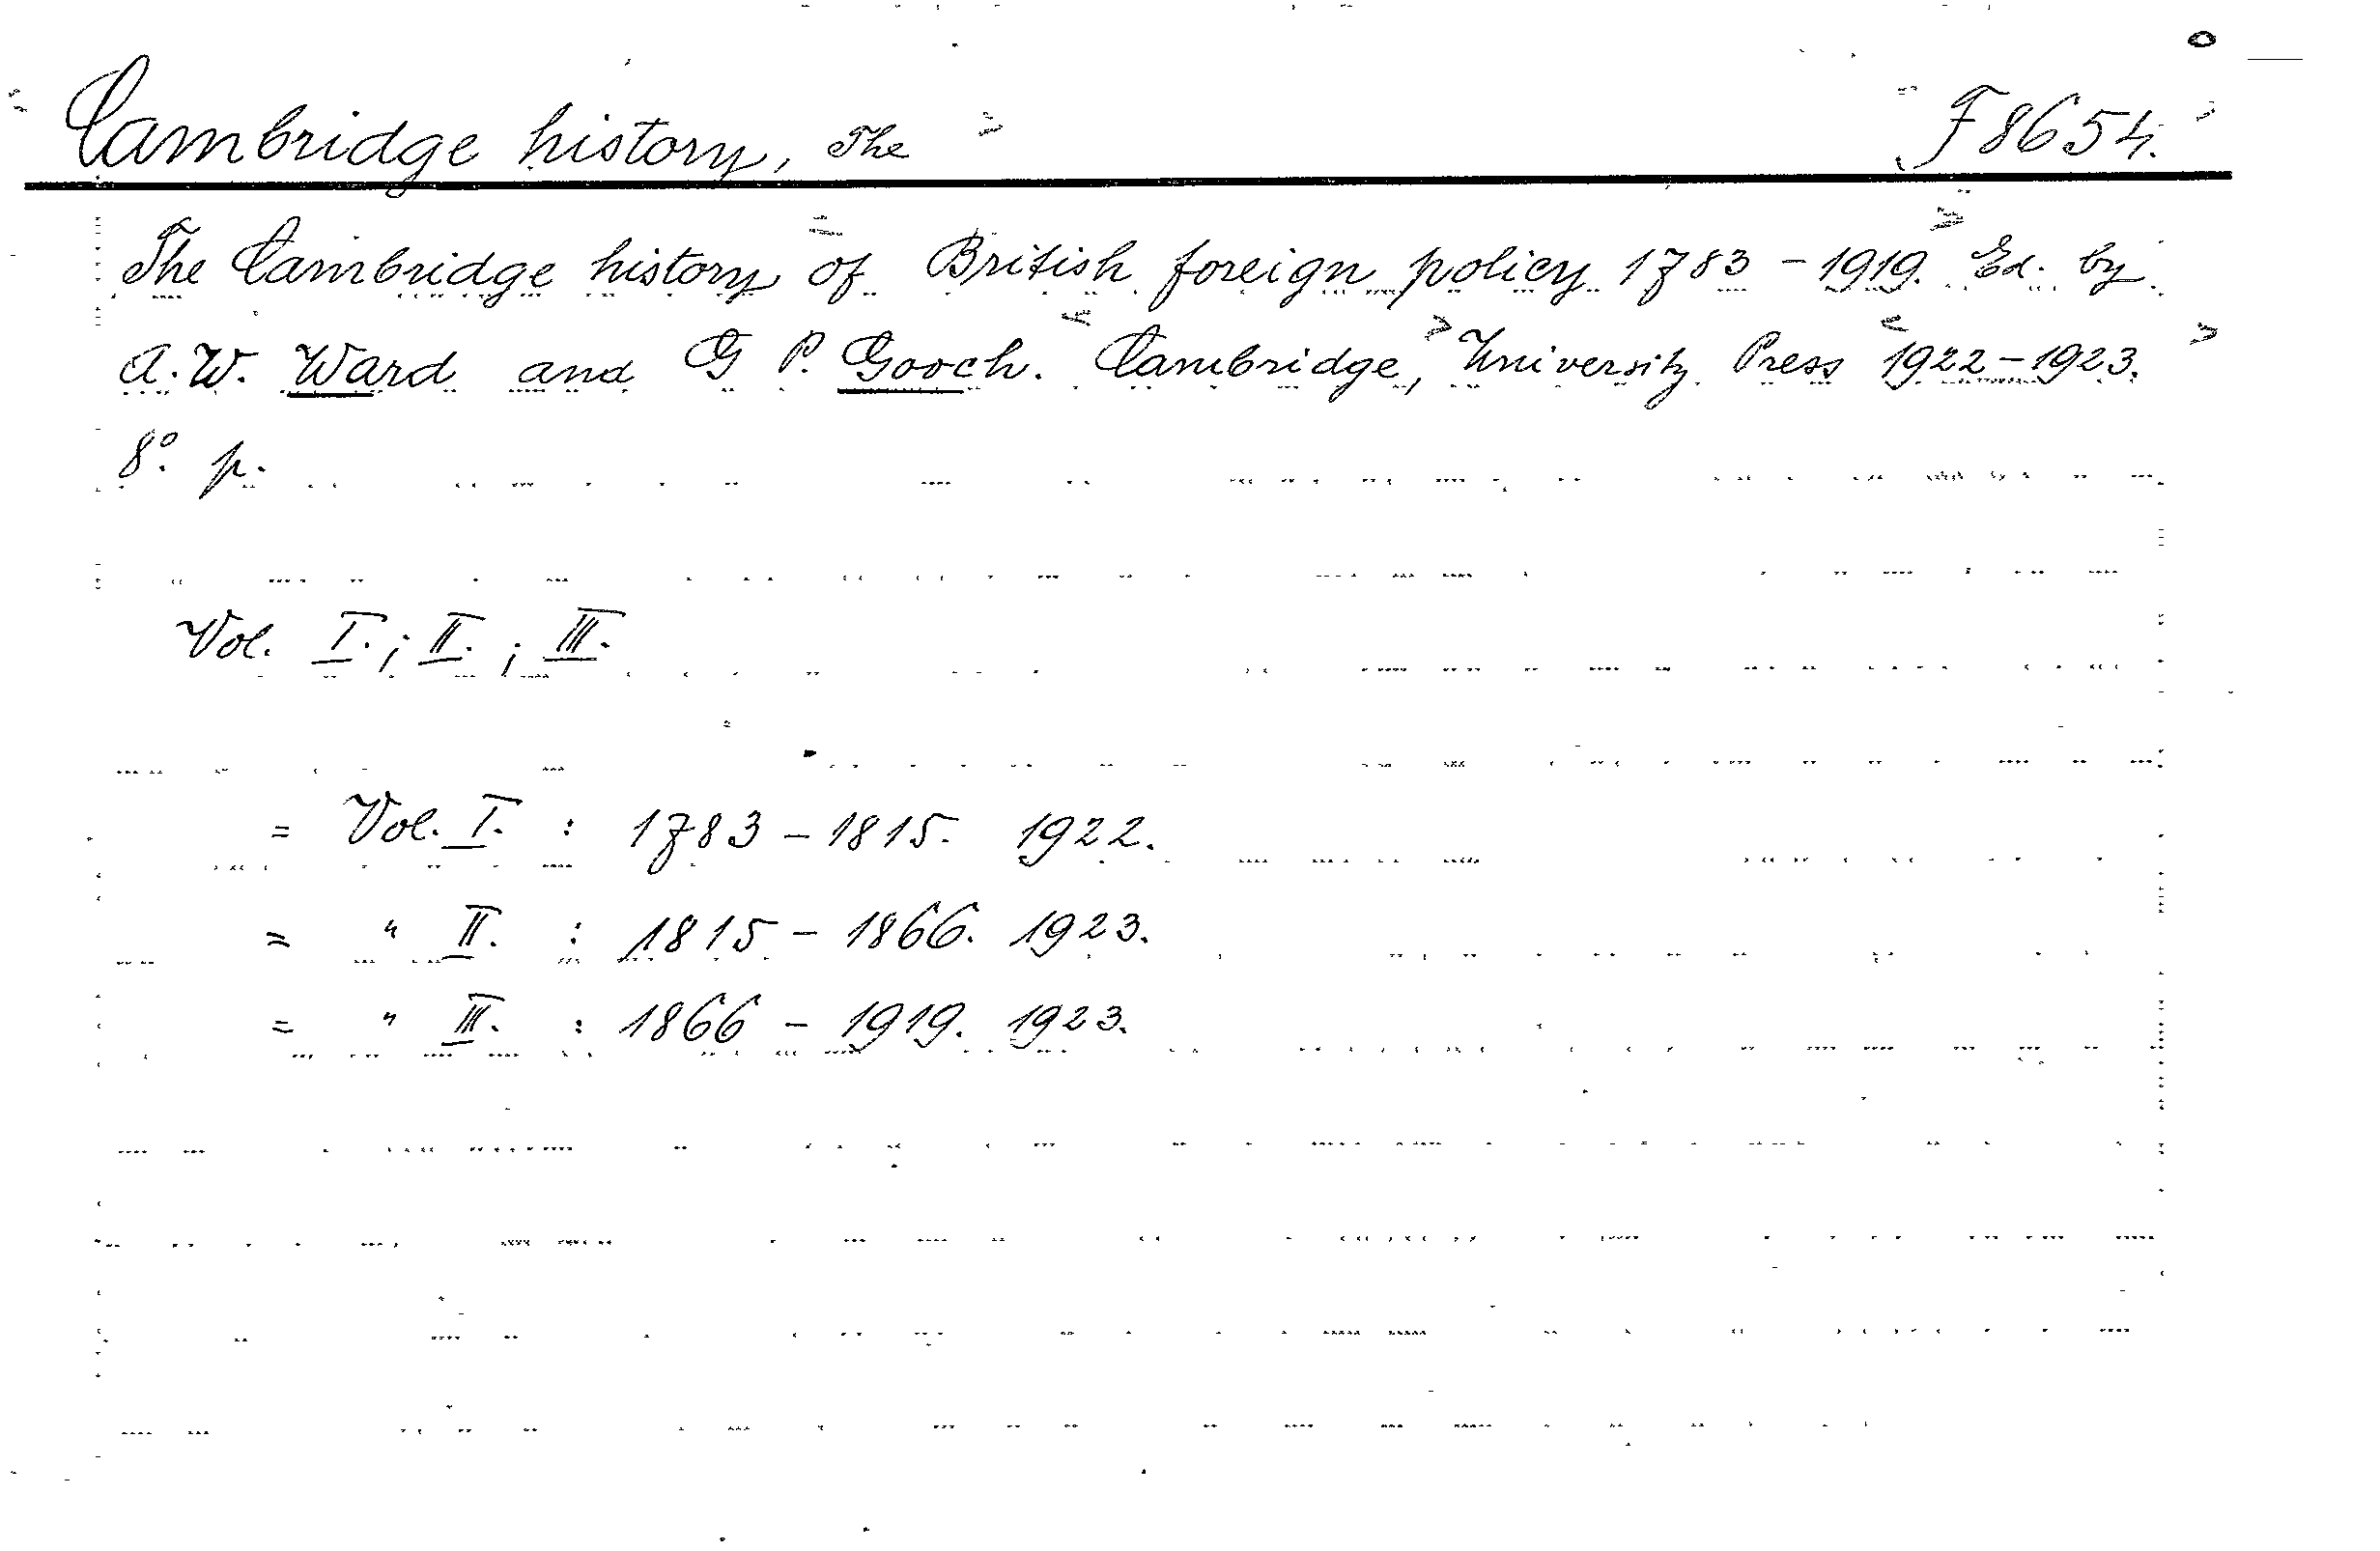 Cambridge history, The F 8654.
The Cambridge history of British foreign policy 1783-1919. Ed. by
A. W. Ward and G P. Gooch. Cambridge, University Press 1922-1923.
8°. p.
Vol. I.; II.; III.
= Vol. I. : 1783-1815. 1922.
= " II. : 1815-1866. 1923.
= " III. : 1866-1919. 1923.